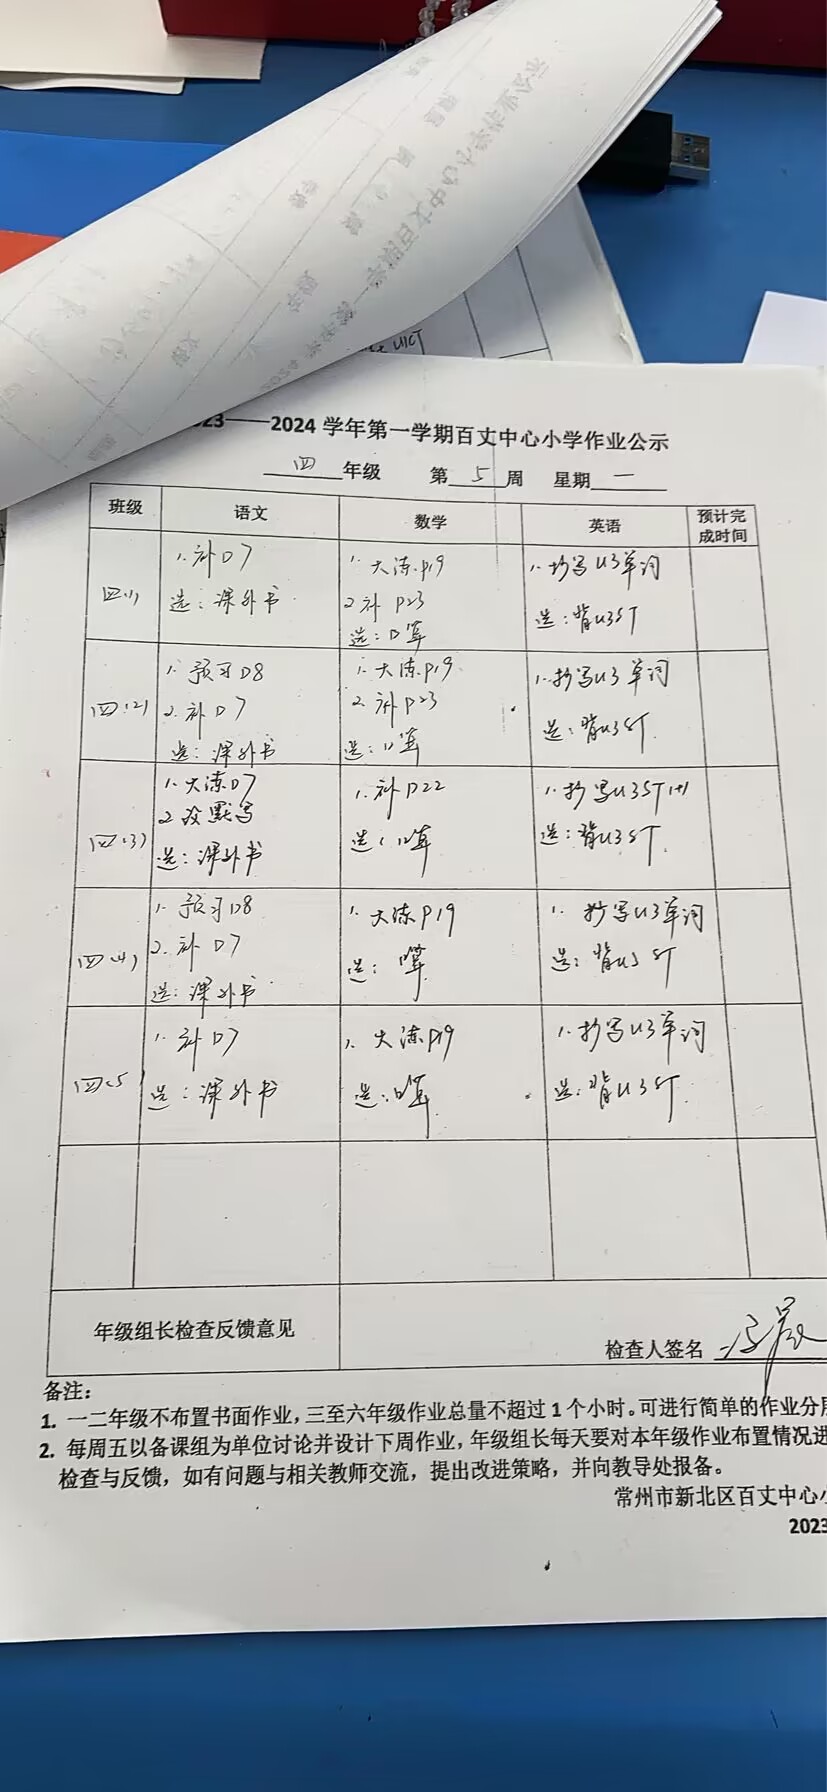 23——2024 学年第一学期百丈中心小学作业公示
四 年级 第 5 周 星期 一
班级 语文 数学 英语 预计完成时间
四(1)
1. 补D7
选：课外书
1. 大练P19
2 补 P23
选：口算
1. 抄写U3单词
选：背U3ST
四(2)
1. 预习D8
2. 补D7
选：课外书
1. 大练P19
2. 补P23
选：口算
1. 抄写U3单词
选：背U3ST
四(3)
1. 大练D7
2 改默写
选：课外书
1. 补P22
选：口算
1. 抄写U3ST
选：背U3ST
四(4)
1. 预习D8
2. 补D7
选：课外书
1. 大练P19
选：口算
1. 抄写U3单词
选：背U3ST
四(5)
1. 补D7
选：课外书
1. 大练P19
选：口算
1. 抄写U3单词
选：背U3ST
年级组长检查反馈意见
检查人签名
备注：
1. 一二年级不布置书面作业，三至六年级作业总量不超过 1 个小时。可进行简单的作业分
2. 每周五以备课组为单位讨论并设计下周作业，年级组长每天要对本年级作业布置情况进
检查与反馈，如有问题与相关教师交流，提出改进策略，并向教导处报备。
常州市新北区百丈中心小
2023